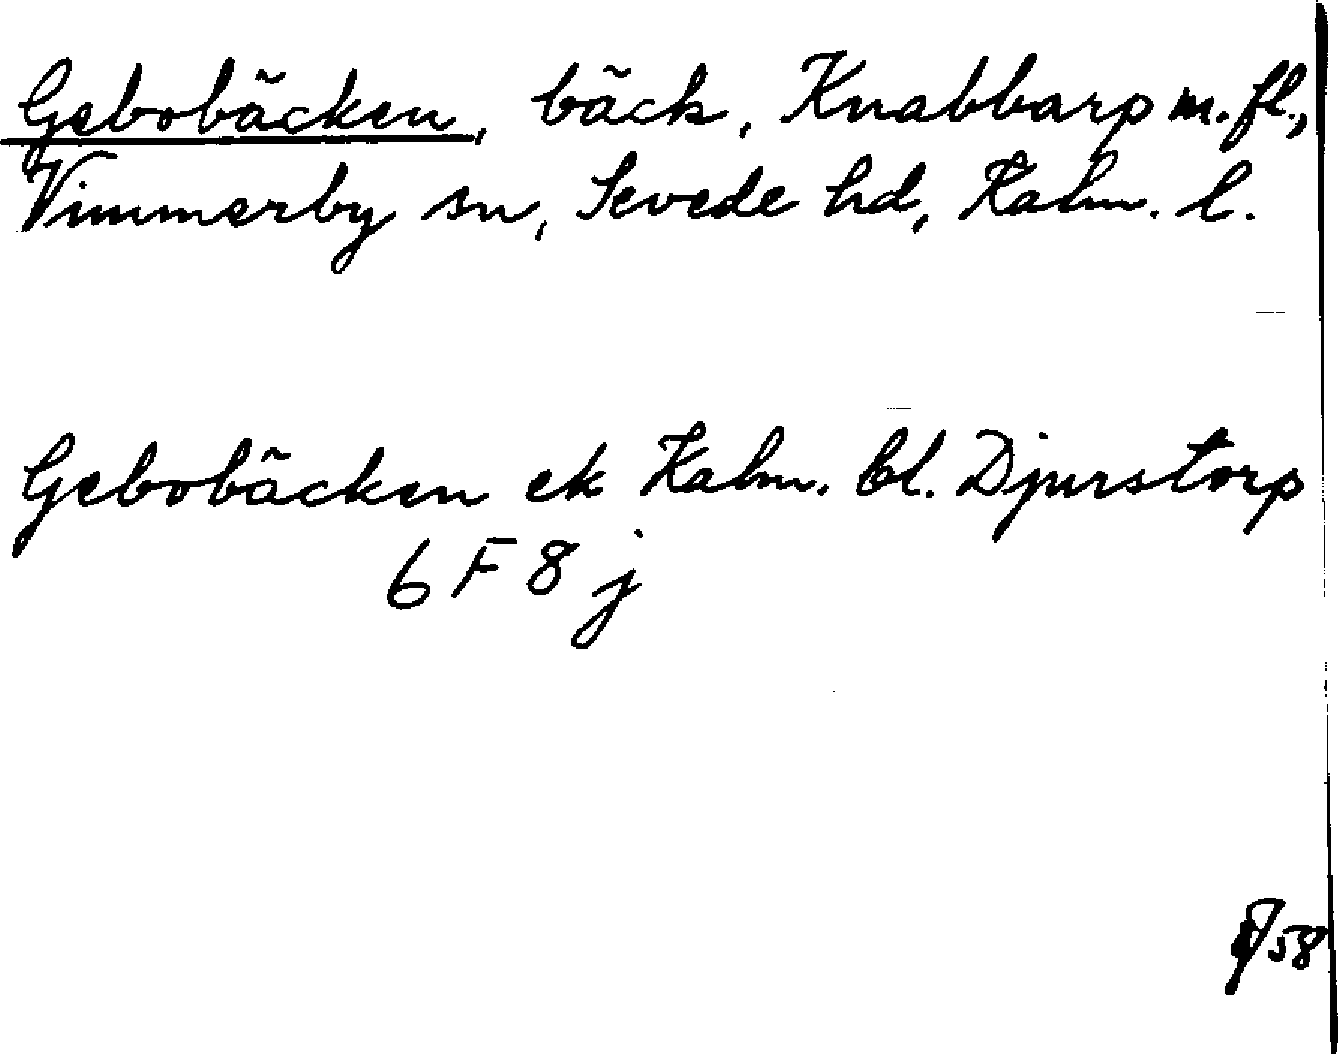 Gebobäcken, bäck, Knabbarp m.fl.,
Vimmerby sn, Sevede hd, Kalm. l.
Gebobäcken ek Kalm. bl. Djurstorp
6 F 8 j
58